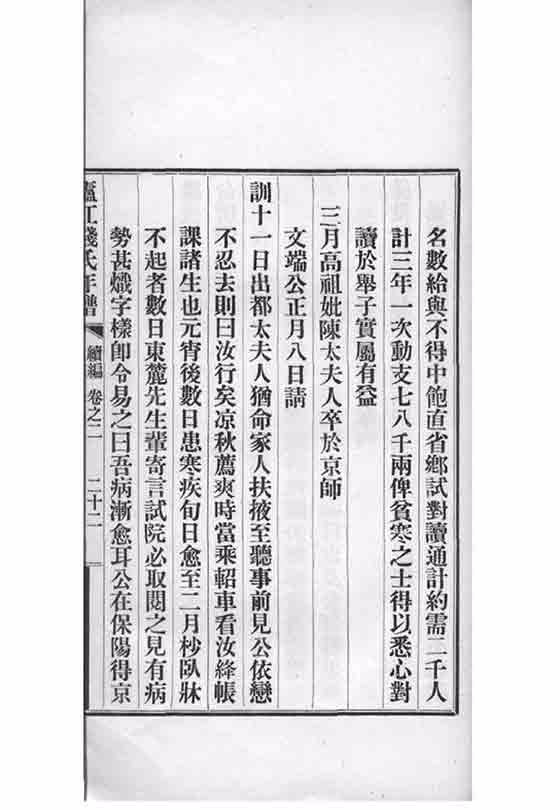 名數給與不得中飽直省鄉試對讀通計約需二千人
計三年一次動支七八千兩俾貧寒之士得以悉心對
讀於舉子實屬有益
三月高祖妣陳太夫人卒於京師
文端公正月八日請
訓十一日出都太夫人猶命家人扶掖至聽事前見公依戀
不忍去則曰汝行矣凉秋薦爽時當乘軺車看汝絳帳
課諸生也元宵後數日患寒疾旬日愈至二月杪臥牀
不起者數日東麓先生輩寄言試院必取閱之見有病
勢甚熾字樣卽令易之曰吾病漸愈耳公在保陽得京
廬江錢氏年譜 續編 卷之二 二十二